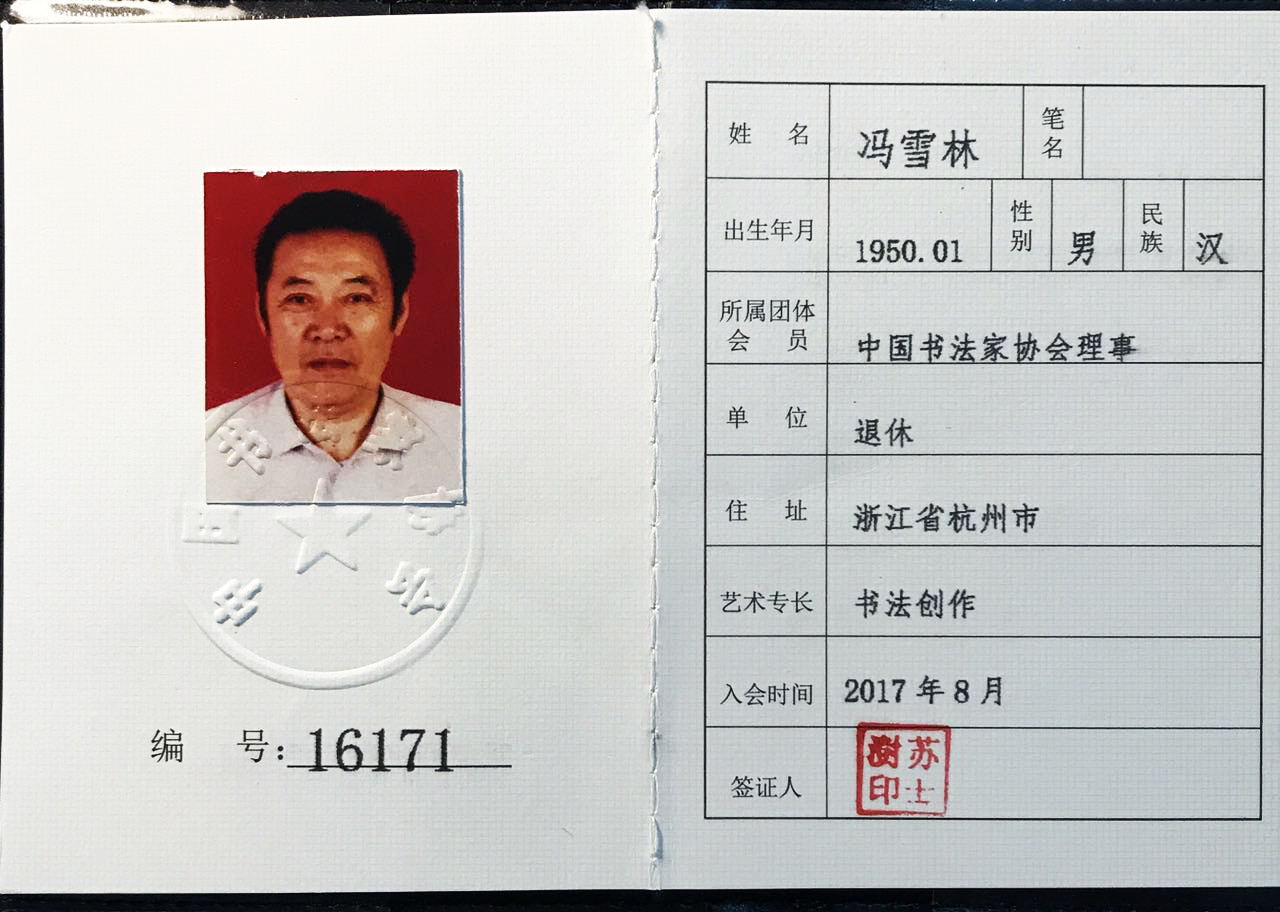 编 号: 16171
姓 名 冯雪林 笔名
出生年月 1950.01 性别 男 民族 汉
所属团体会员 中国书法家协会理事
单 位 退休
住 址 浙江省杭州市
艺术专长 书法创作
入会时间 2017 年 8 月
签证人 苏士澍印